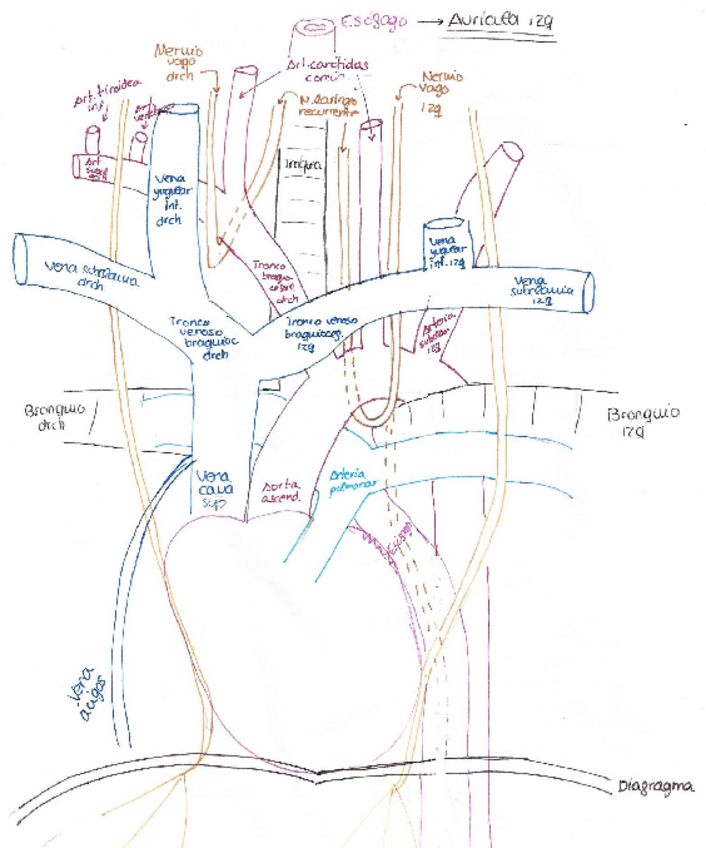 Esófago → Aurícula izq
Nervio
vago
drch
Art. carótidas
común
Nervio
vago
izq
Art. tiroidea
inf.
N. laringo
recurrente
Art
drch
Tráquea
Vena
yugular
int.
drch
Vena
yugular
int. izq
Vena subclavia
drch
Tronco
braquio-
drch
Vena
subclavia
izq
Tronco
venoso
braquioc
drch
Tronco venoso
braquiocef.
izq
Arteria
izq
Bronquio
drch
Bronquio
izq
Vena
cava
sup
Aorta
ascend.
Arteria
pulmonar
Esófago
Vena
ácigos
Diagragma